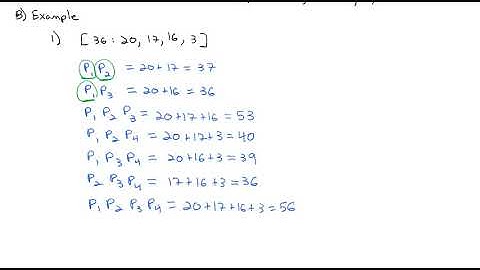 B) Example
1) [36 : 20, 17, 16, 3]
P₁P₂ = 20+17 = 37
P₁P₃ = 20+16 = 36
P₁ P₂ P₃ = 20+17+16 = 53
P₁ P₂ P₄ = 20+17+3 = 40
P₁ P₃ P₄ = 20+16+3 = 39
P₂ P₃ P₄ = 17+16+3 = 36
P₁ P₂ P₃ P₄ = 20+17+16+3 = 56